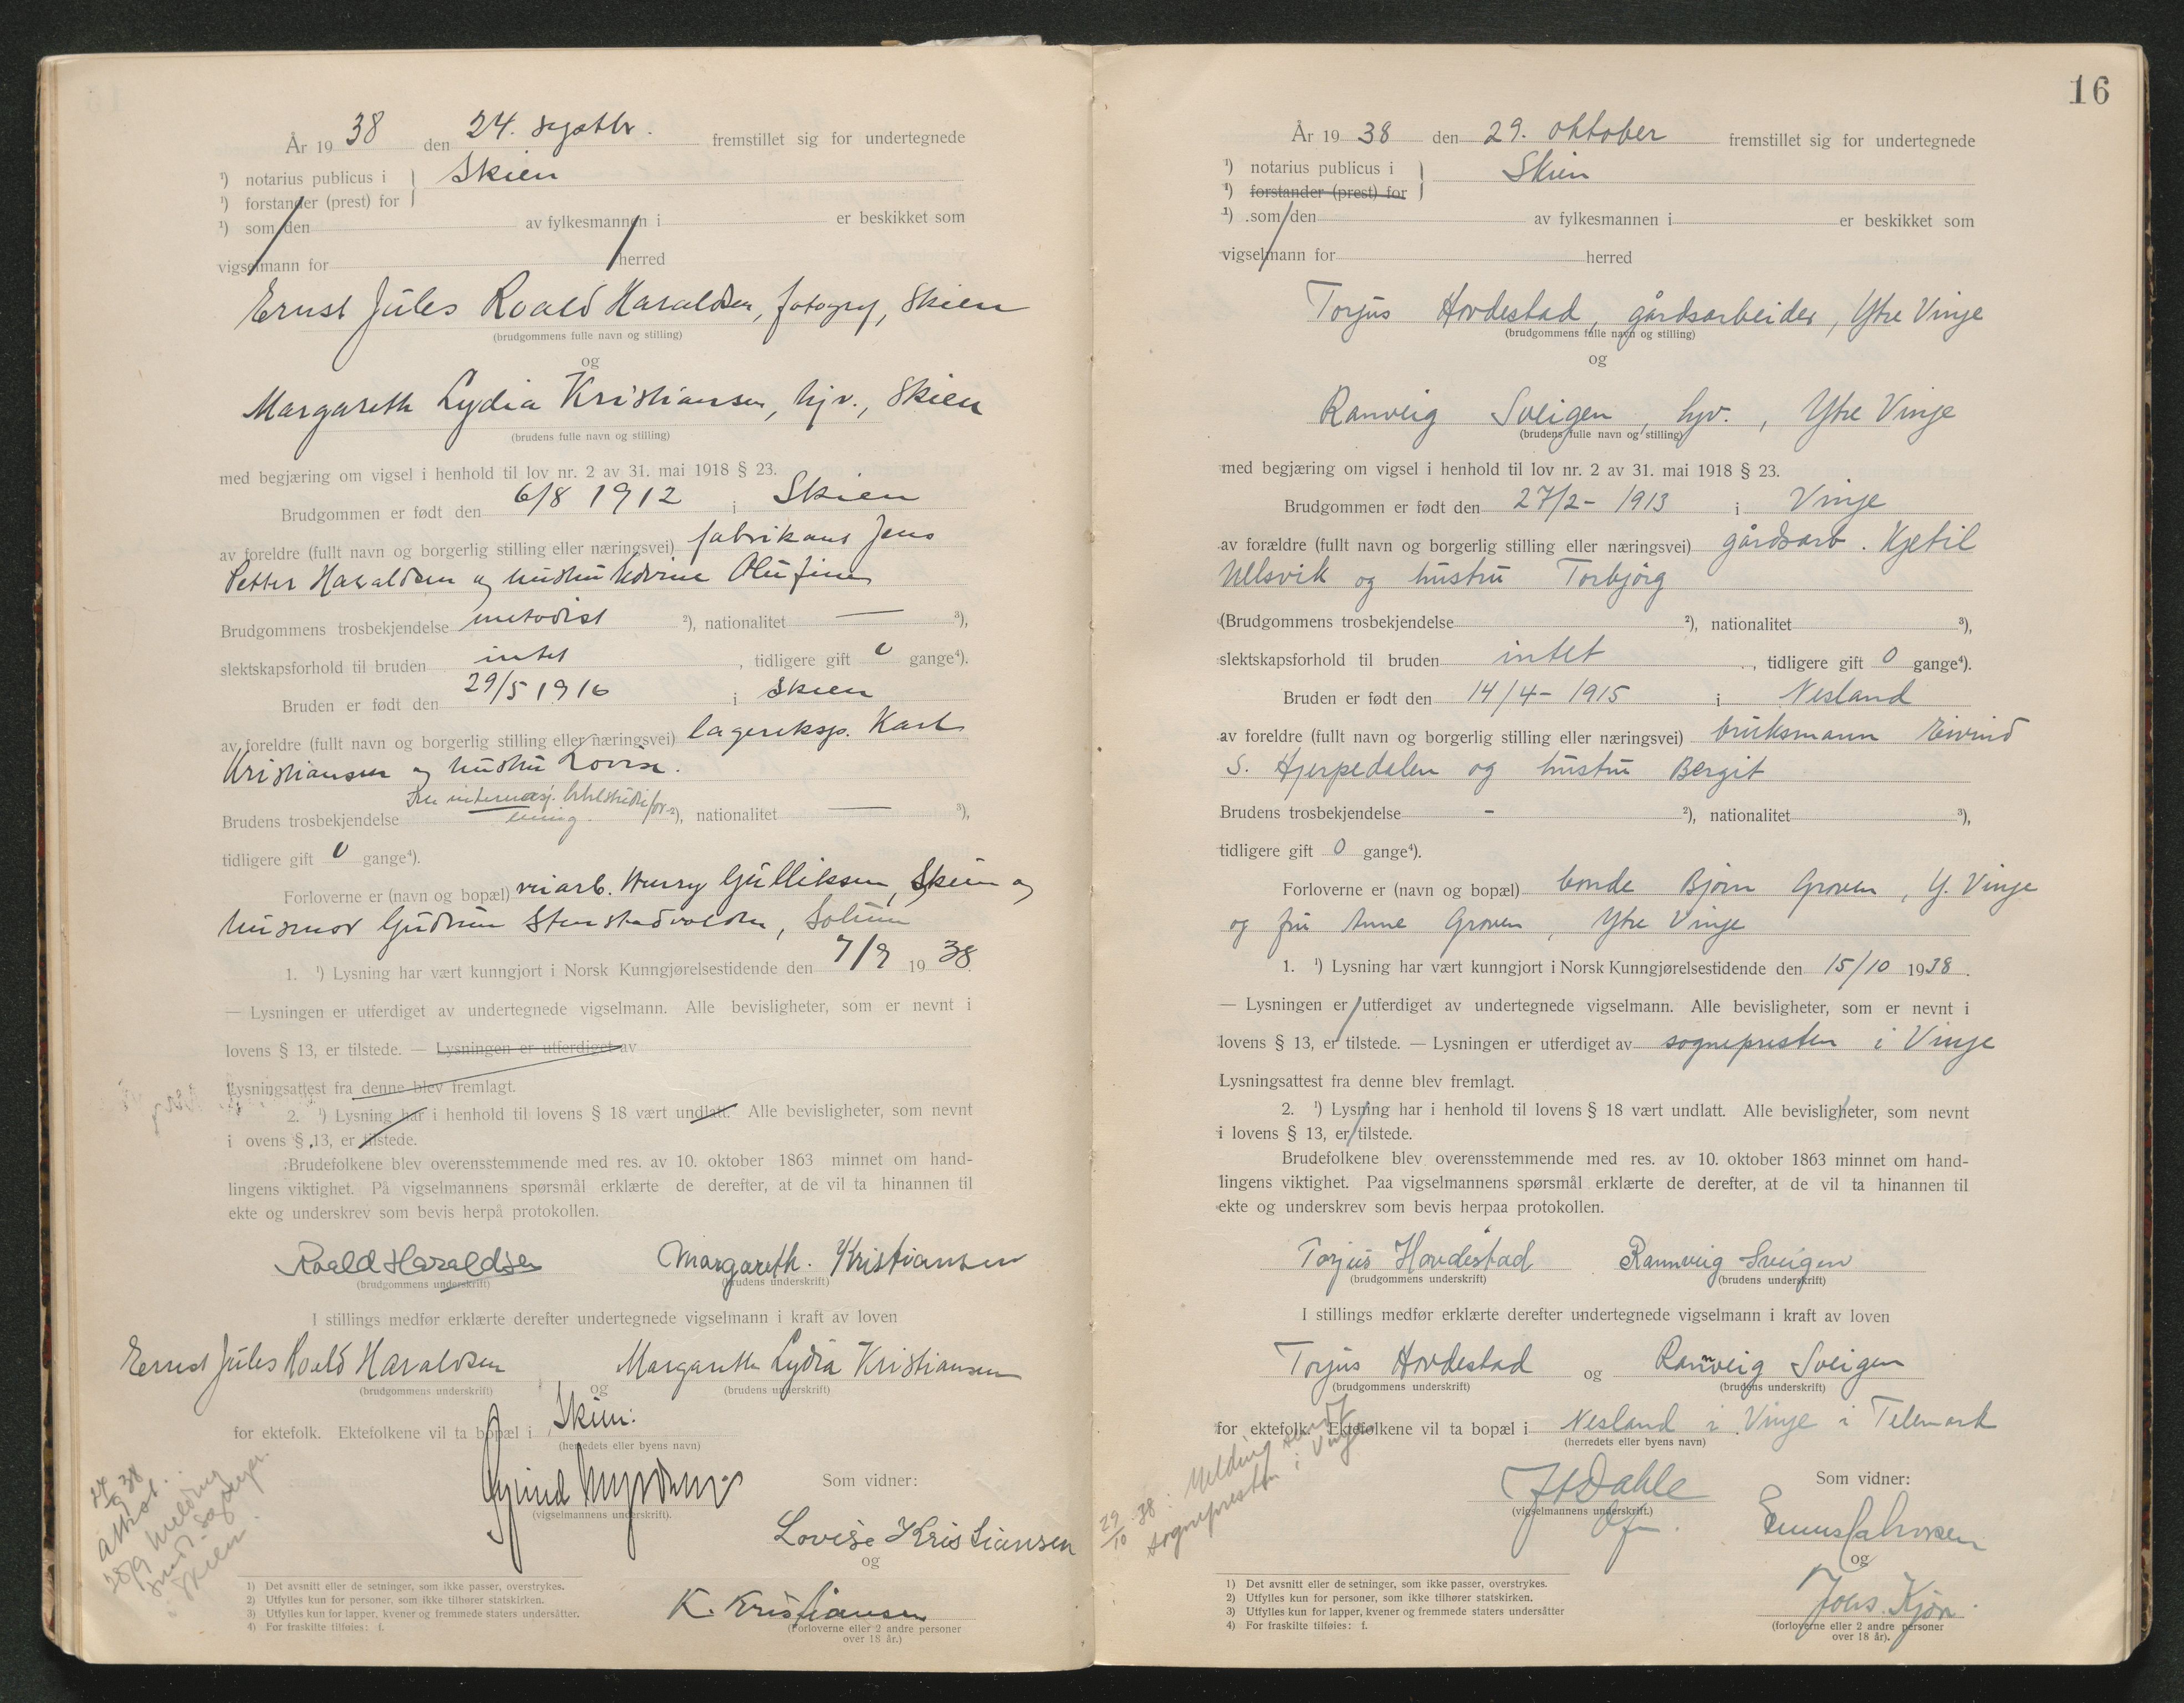 År 19 38 den 24. septbr. fremstillet sig for undertegnede
¹) notarius publicus i } Skien
¹) forstander (prest) for
¹) som den av fylkesmannen i er beskikket som
vigselmann for herred
Ernst Jules Roald Haraldsen, fotograf, Skien
(brudgommens fulle navn og stilling)
og
Margareth Lydia Kristiansen, hjv., Skien
(brudens fulle navn og stilling)
med begjæring om vigsel i henhold til lov nr. 2 av 31. mai 1918 § 23.
Brudgommen er født den 6/8 1912 i Skien
av foreldre (fullt navn og borgerlig stilling eller næringsvei) fabrikant Jens
Petter Haraldsen og hustru Edvine Olufine
Brudgommens trosbekjendelse metodist ²), nationalitet — ³),
slektskapsforhold til bruden intet, tidligere gift 0 gange⁴).
Bruden er født den 29/5 1916 i Skien
av foreldre (fullt navn og borgerlig stilling eller næringsvei) lagereksp. Karl
Kristiansen og hustru Lovise.
Den internasj. bibelstudiefor-
Brudens trosbekjendelse ening. ²), nationalitet — ³),
tidligere gift 0 gange⁴).
Forloverne er (navn og bopæl) Harry Gulliksen, Skien og
husmor Gudrun Stenstadvolden, Solum
1. ¹) Lysning har vært kunngjort i Norsk Kunngjørelsestidende den 7/9 19 38.
— Lysningen er utferdiget av undertegnede vigselmann. Alle bevisligheter, som er nevnt i
lovens § 13, er tilstede. — Lysningen er utferdiget av
Lysningsattest fra denne blev fremlagt.
2. ¹) Lysning har i henhold til lovens § 18 vært undlatt. Alle bevisligheter, som nevnt
i ovens § 13, er tilstede.
Brudefolkene blev overensstemmende med res. av 10. oktober 1863 minnet om hand-
lingens viktighet. På vigselmannens spørsmål erklærte de derefter, at de vil ta hinannen til
ekte og underskrev som bevis herpå protokollen.
Roald Haraldsen Margareth. Kristiansen
(brudgommens underskrift) (brudens underskrift)
I stillings medfør erklærte derefter undertegnede vigselmann i kraft av loven
Ernst Jules Roald Haraldsen og Margareth Lydia Kristiansen
(brudgommens underskrift) (brudens underskrift)
for ektefolk. Ektefolkene vil ta bopæl i Skien.
(herredets eller byens navn)
Som vidner:
(vigselmannens underskrift).
Lovise Kristiansen
og
K. Kristiansen
(Forloverne eller 2 andre personer
over 18 år.)
24/9 38
attest.
28/9 melding
sendt sogneprs.
i Skien.
1) Det avsnitt eller de setninger, som ikke passer, overstrykes.
2) Utfylles kun for personer, som ikke tilhører statskirken.
3) Utfylles kun for lapper, kvener og fremmede staters undersåtter.
4) For fraskilte tilføies: f.
16
År 19 38 den 29. oktober fremstillet sig for undertegnede
¹) notarius publicus i } Skien
¹) forstander (prest) for
¹) som den av fylkesmannen i er beskikket som
vigselmann for herred
Torjus Hovdestad, gårdsarbeider, Ytre Vinje
(brudgommens fulle navn og stilling)
og
Ranveig Sveigen, hjv., Ytre Vinje
(brudens fulle navn og stilling)
med begjæring om vigsel i henhold til lov nr. 2 av 31. mai 1918 § 23.
Brudgommen er født den 27/2 - 1913 i Vinje
av forældre (fullt navn og borgerlig stilling eller næringsvei) gårdsarb. Kjetil
Ullsvik og hustru Torbjørg
(Brudgommens trosbekjendelse ²), nationalitet ³),
slektskapsforhold til bruden intet, tidligere gift 0 gange⁴).
Bruden er født den 14/4 - 1915 i Nesland
av foreldre (fullt navn og borgerlig stilling eller næringsvei) bruksmann Eivind
S. Hjerpedalen og hustru Bergit
Brudens trosbekjendelse - ²), nationalitet ³),
tidligere gift 0 gange⁴).
Forloverne er (navn og bopæl) bonde Bjørn Groven, Y. Vinje
og fru Anne Groven, Ytre Vinje
1. ¹) Lysning har vært kunngjort i Norsk Kunngjørelsestidende den 15/10 1938.
— Lysningen er utferdiget av undertegnede vigselmann. Alle bevisligheter, som er nevnt i
lovens § 13, er tilstede. — Lysningen er utferdiget av sognepresten i Vinje
Lysningsattest fra denne blev fremlagt.
2. ¹) Lysning har i henhold til lovens § 18 vært undlatt. Alle bevisligheter, som nevnt
i lovens § 13, er tilstede.
Brudefolkene blev overensstemmende med res. av 10. oktober 1863 minnet om hand-
lingens viktighet. Paa vigselmannens spørsmål erklærte de derefter, at de vil ta hinannen til
ekte og underskrev som bevis herpaa protokollen.
Torjus Hovdestad Rannveig Sveigen
(brudgommens underskrift) (brudens underskrift)
I stillings medfør erklærte derefter undertegnede vigselmann i kraft av loven
Torjus Hovdestad og Rannveig Sveigen
(brudgommens underskrift) (brudens underskrift)
for ektefolk. Ektefolkene vil ta bopæl i Nesland i Vinje i Telemark
(herredets eller byens navn)
29/10 38: Melding sendt
sognepresten i Vinje
Dahle
(vigselmannens underskrift.)
Som vidner:
og
Johs. Kjøn
(forloverne eller 2 andre personer
over 18 år).
1) Det avsnitt eller de setninger, som ikke passer, overstrykes.
2) Utfylles kun for personer, som ikke tilhører statskirken.
3) Utfylles kun for lapper, kvener og fremmede staters undersåtter
4) For fraskilte tilføies: f.